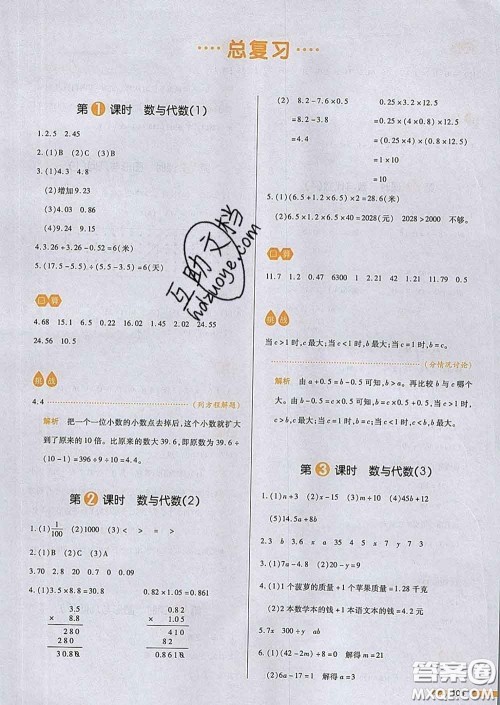 总复习
第1课时 数与代数(1)
1.2.5 2.45
2.(1)B (2)C (3)B
3.(1)4.3 4.8
(2)增加 9.23
(3)4.03 0.86
(4)9.24 9.15
4.3.26+3.26-0.52=6(米)
5.(1.5+17.5)÷(5.5-3.1)=6(天)
口算
4.68 15.1 6.5 0.22 1.46 2.02 24.55
24.56 10.5
挑战
4.4
(列方程解题)
解析 把一个一位小数的小数点去掉后,这个小数就扩大
到了原来的10倍。比原来的数大39.6,即原数为39.6÷
(10-1)=396÷9÷10=4.4。
第2课时 数与代数(2)
1.(1)1/100 (2)1000 (3)< > = >
2.(1)B (2)C (3)A
3.70 2.8 20 0.7 0 0.09
4.(1)3.5×8.8=30.8 0.82×1.05=0.861
3.5 0.82
× 8.8 × 1.05
280 410
280 82
30.80 0.8610
(2) 8.2-7.6×0.5 0.25×3.2×12.5
=8.2-3.8 =0.25×(4×0.8)×12.5
=4.4 =(0.25×4)×(0.8×12.5)
=1×10
=10
5.(1)(6.5+1.2×6.5)×2=28.6(米)
(2)(6.5×1.2)×6.5×40=2028(元) 2028>2000 不够。
口算
11.7 1.2 0.49 6300 1 2.11 42 20 0.027
挑战
当c>1时,c最大;当c<1时,b最大;当c=1时,b=c。
(分情况讨论)
解析 由a+0.5=b-0.5可知,b>a。再比较b与c哪个
大。由b-0.5=c×0.5可知,b=c×0.5+0.5。当c>1时,
c最大;当c<1时,b最大;当c=1时,b=c。
第3课时 数与代数(3)
1.(1)n+3 (2)x-15 (3)m÷10 (4)45b+12
(5)14.5a+8b
2.3 b 3.6 35 a 4x 5x 7 y 7 3
3.(1)7a-4.8 (2)20-y=9
4.(1)1个菠萝的质量+1个苹果质量=1.28千克
(2)2本数学本的钱+1本语文本的钱=4.2元
5.7x 300÷y ab
6.(1)(42-2m)÷8=0 解得m=21
(2)6a-17=1 解得a=3
互助文档
hdzuoye.com
答案圈
MXQE.COM